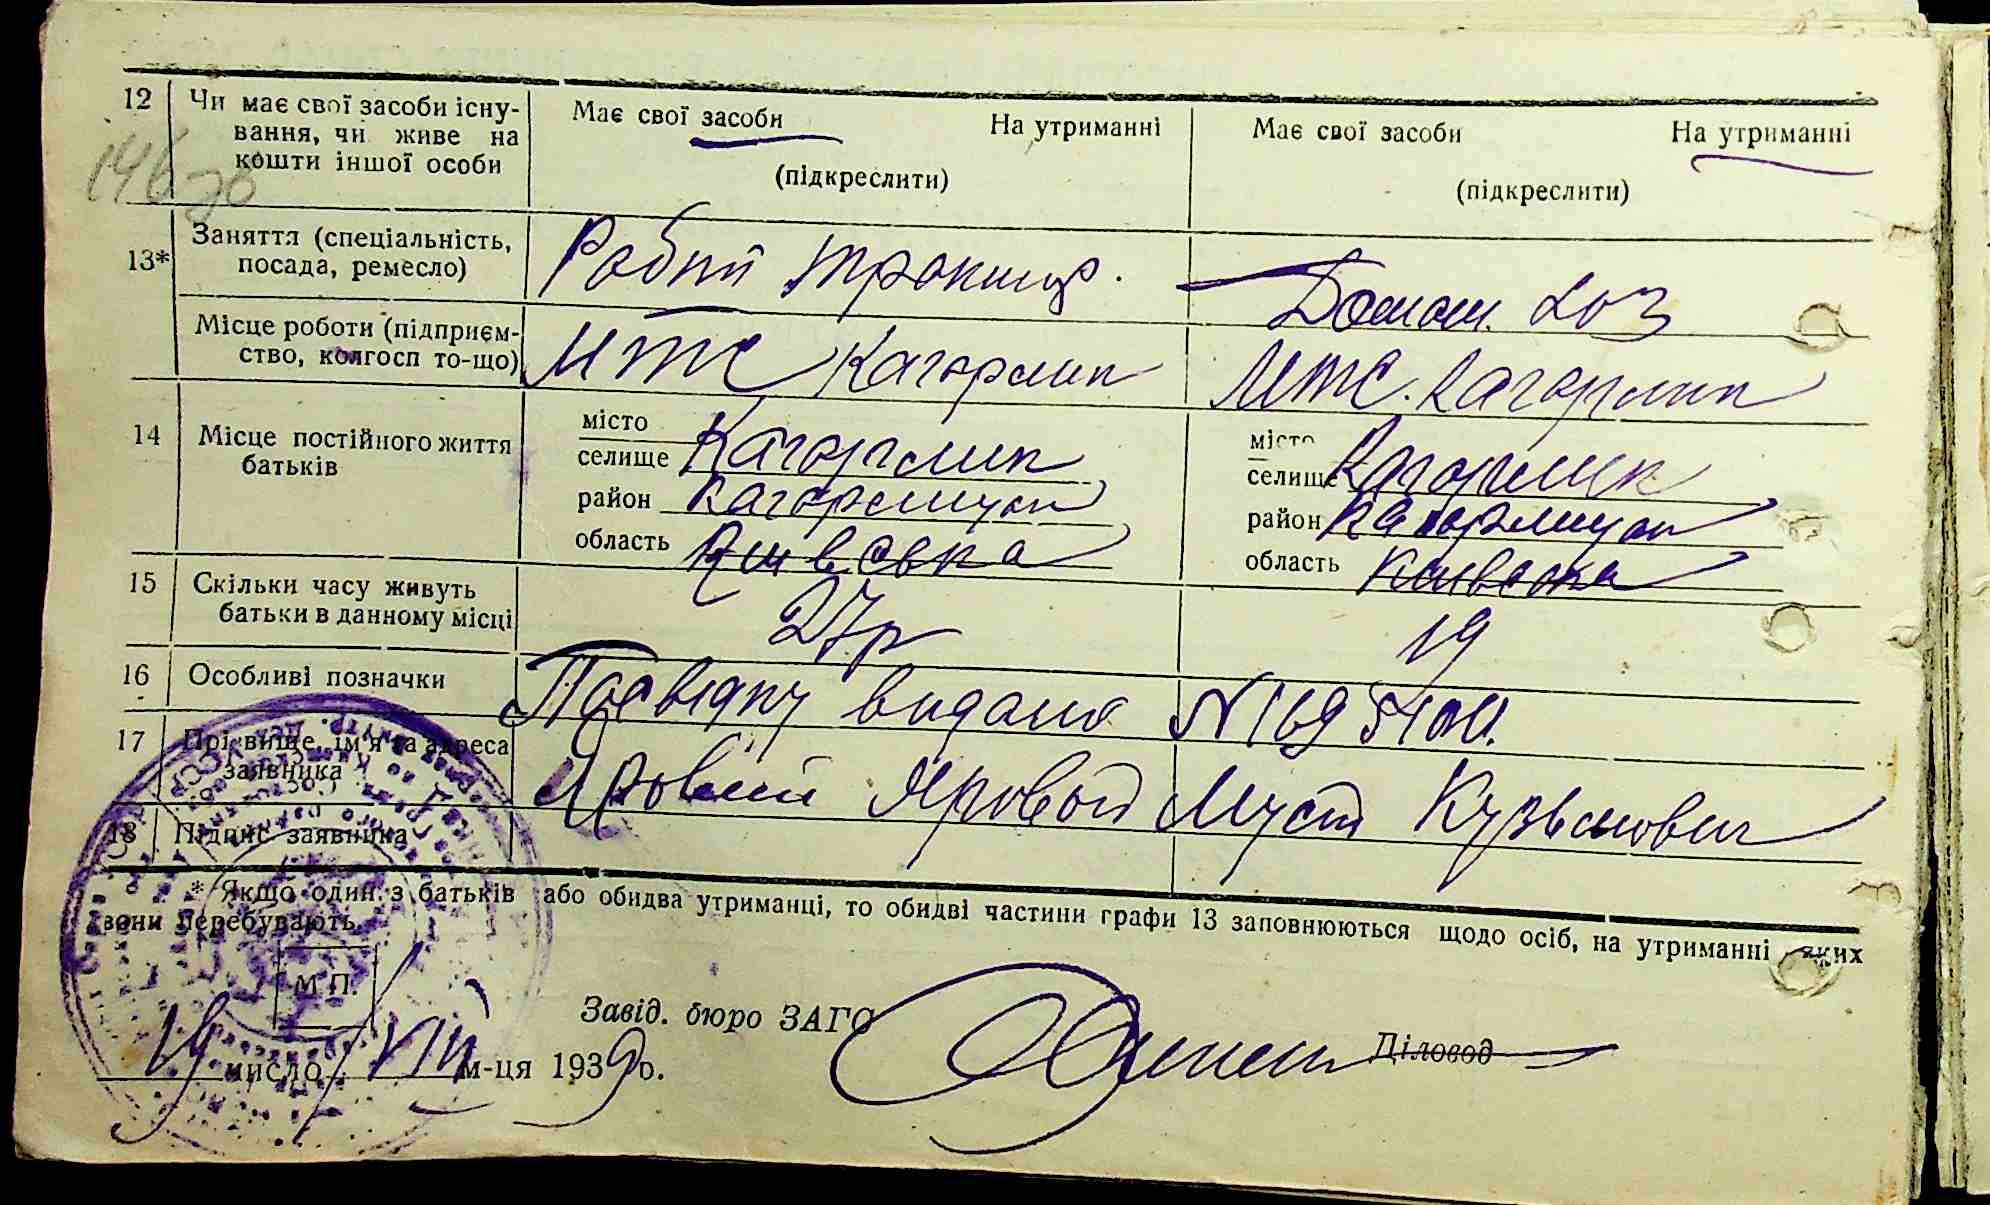 12 Чи має свої засоби існу-
вання, чи живе на
кошти іншої особи
Має свої засоби На утриманні
(підкреслити)
Має свої засоби На утриманні
(підкреслити)
13* Заняття (спеціальність,
посада, ремесло)
Робіт
Домат. Хоз
Місце роботи (підприєм-
ство, колгосп то-що)
МТС Кагарлик
МТС. Кагарлик
14 Місце постійного життя
батьків
місто
селище Кагарлик
район Кагарлицьк
область Київська
місто
селище Кагарлик
район Кагарлицьк
область Київська
15 Скільки часу живуть
батьки в данному місці
27р
19
16 Особливі позначки
Посвідку видано N 169
17 Прізвище, ім'я та адреса
заявника
Яровий Яровой Мусій Кузьмович
18 Підпис заявника
* Якщо один з батьків або обидва утриманці, то обидві частини графи 13 заповнюються щодо осіб, на утриманні яких
вони перебувають.
М.П.
19 число VIII м-ця 1939 р.
Завід. бюро ЗАГС
Діловод